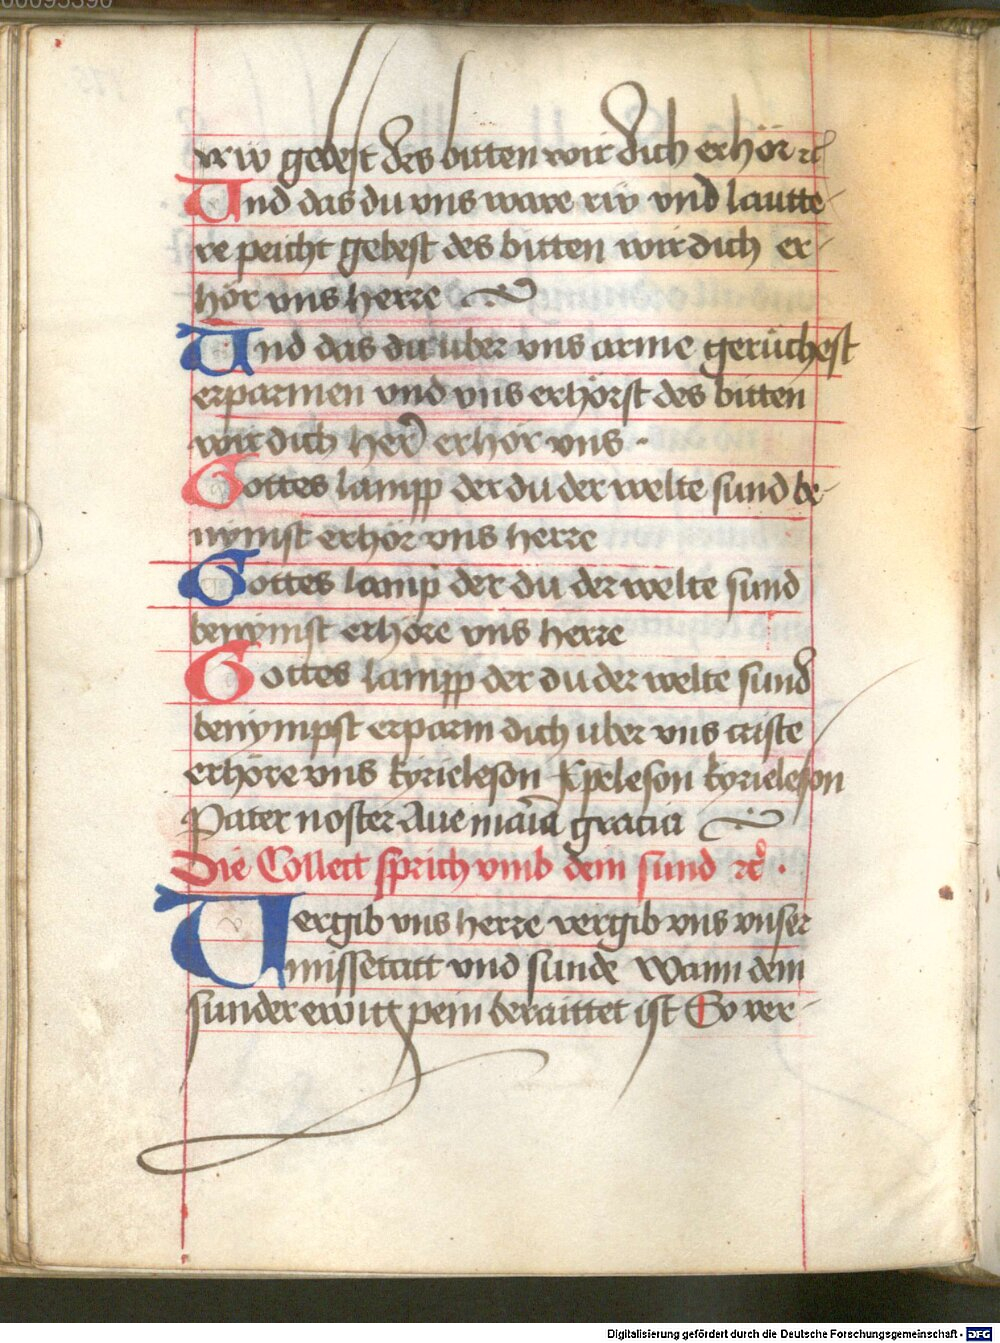 00095390
rriw gebest des bitten wir dich erhör ꝛc
Und das du vns ware riw vnd lautte-
re peicht gebest des bitten wir dich er-
hör vns herre
Und das du uber vns arme gerüchest
erparmen vnd vns erhörst des bitten
wir dich herr erhör vns
Gottes lampp der du der welte sund be-
nymst erhör vns herre
Gottes lamp der du der welte sund
benymst erhöre vns herre
Gottes lampp der du der welte sund
benympst erparm dich uber vns criste
erhöre vns kyrieleson xpeleson kyrieleson
Pater noster Aue maria gracia
Die Collect sprich vmb dem sund ꝛc
Uergib vns herre vergib vns vnser
missetatt vnd sunde Wann dem
sunder ewig pein beraittet ist So ver-
Digitalisierung gefördert durch die Deutsche Forschungsgemeinschaft - DFG